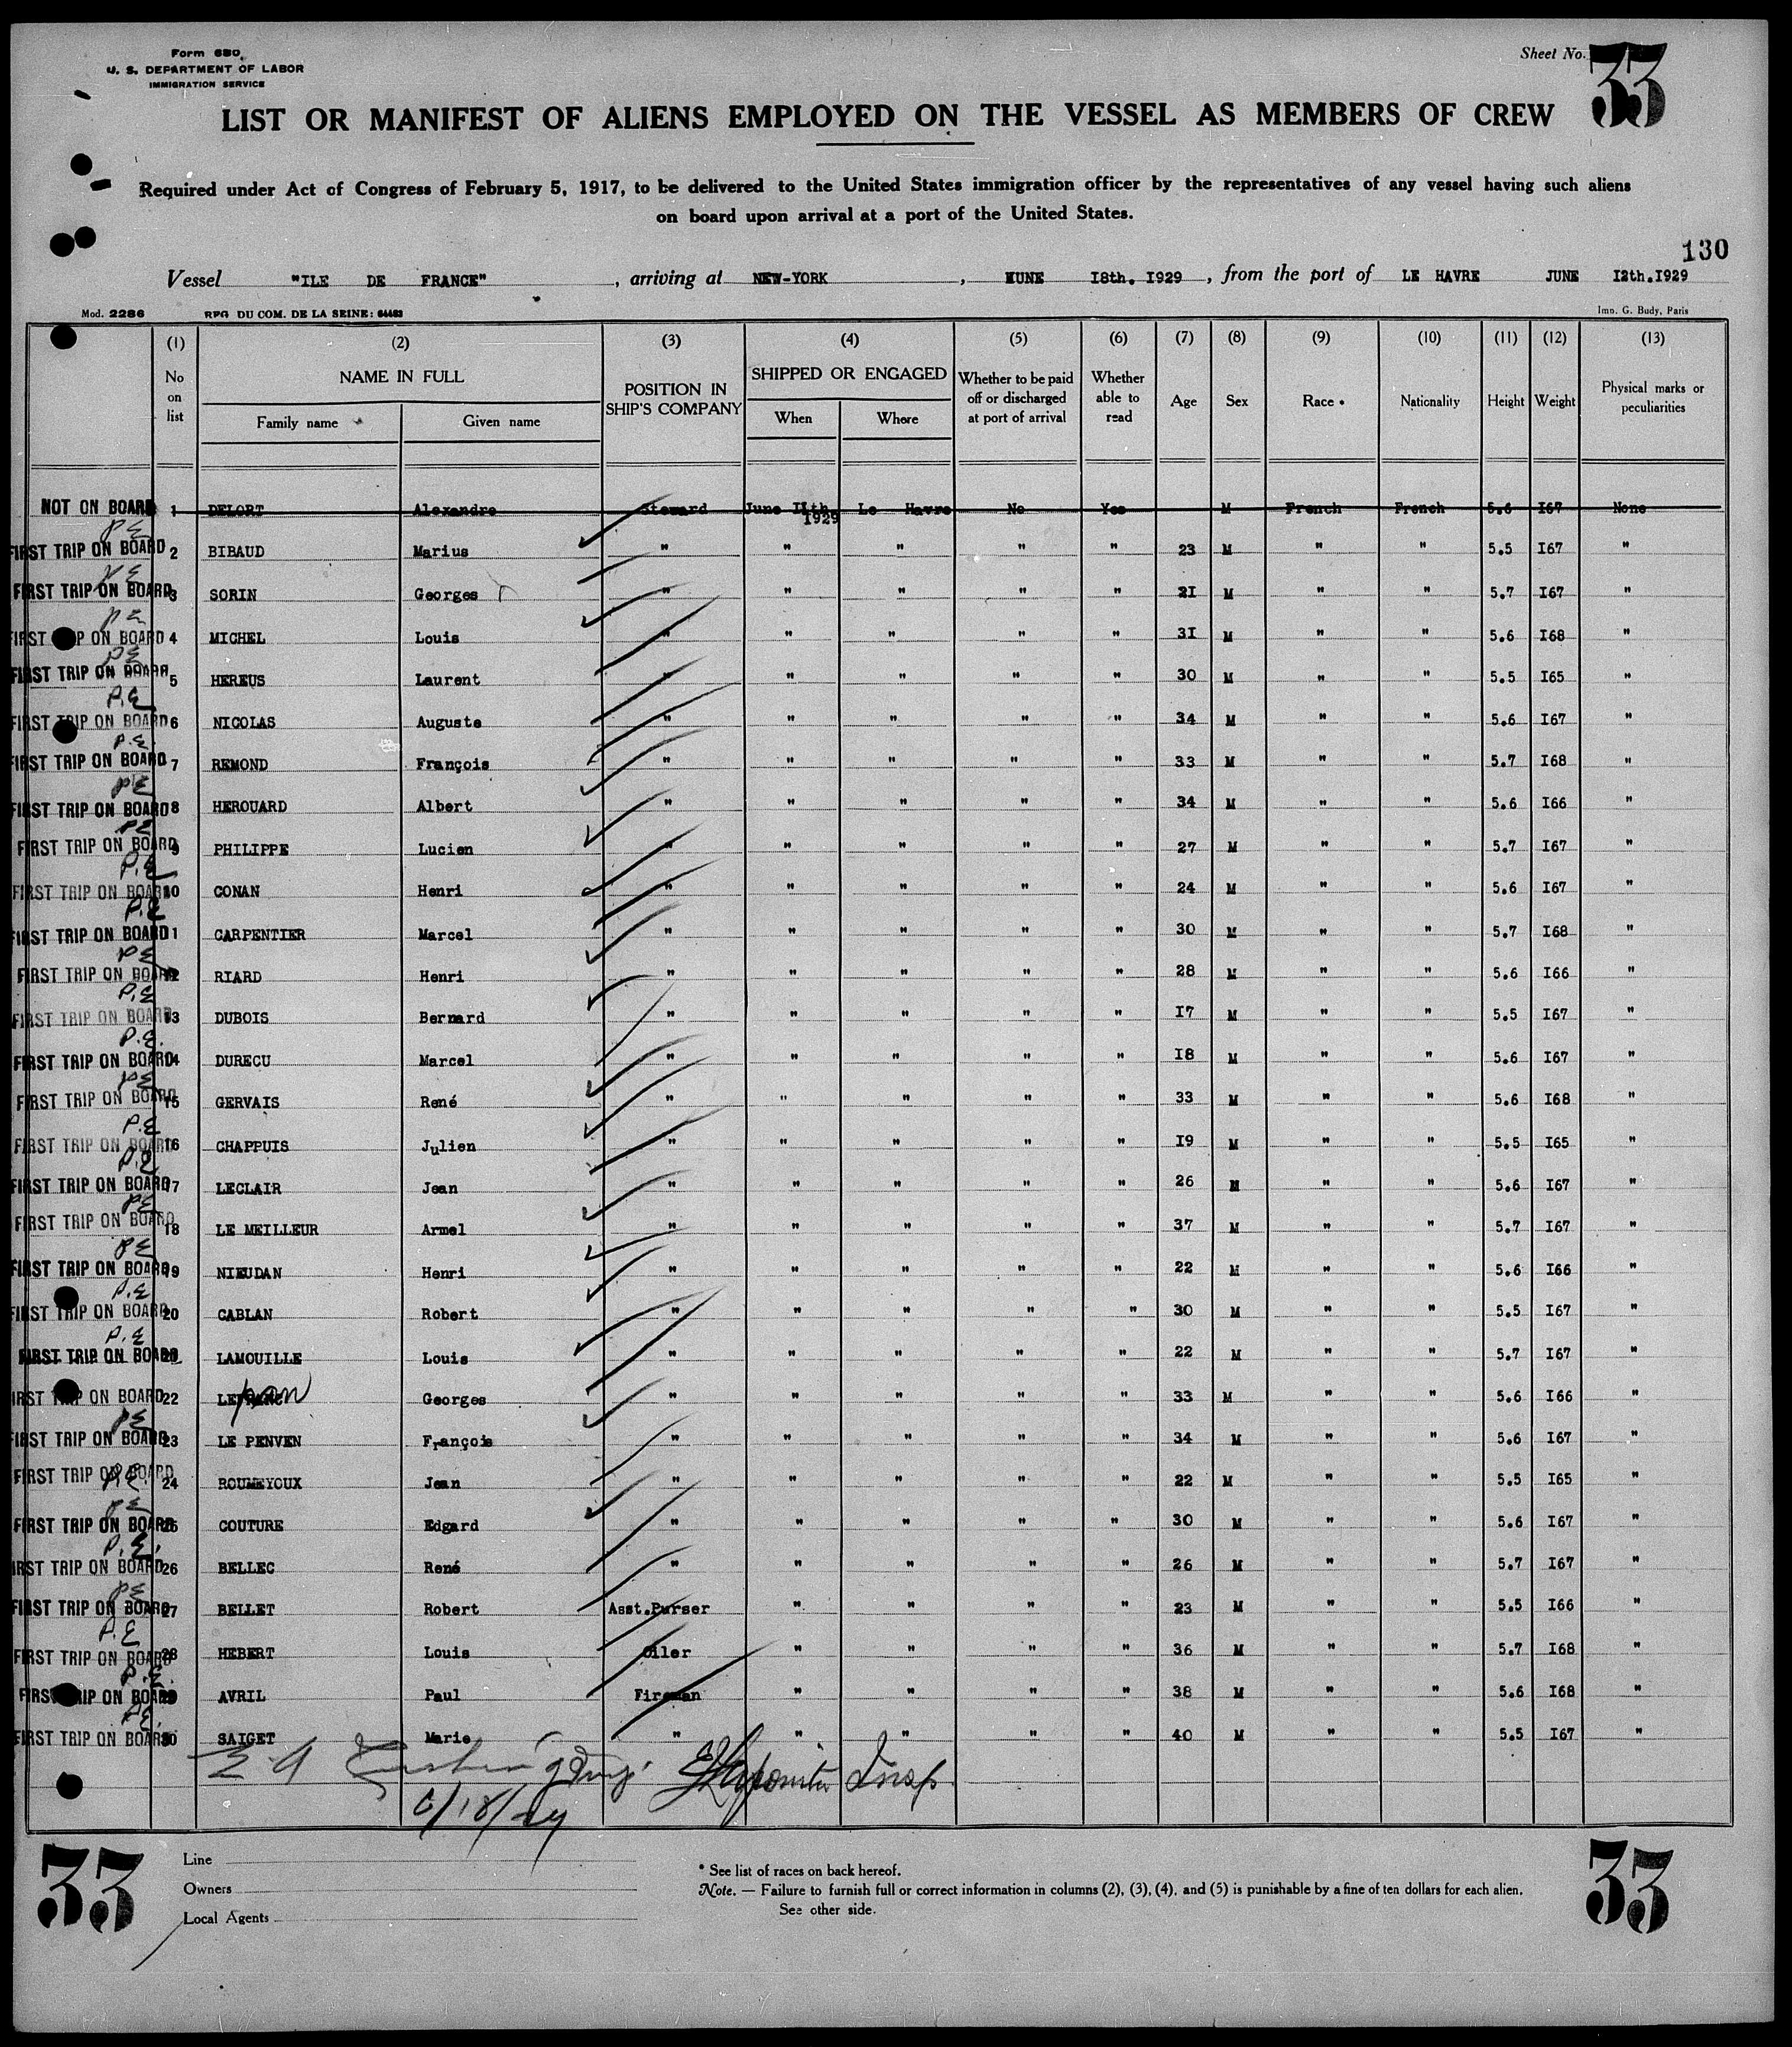 Form 680
U. S. DEPARTMENT OF LABOR
IMMIGRATION SERVICE
Sheet No. 33
LIST OR MANIFEST OF ALIENS EMPLOYED ON THE VESSEL AS MEMBERS OF CREW
Required under Act of Congress of February 5, 1917, to be delivered to the United States immigration officer by the representatives of any vessel having such aliens
on board upon arrival at a port of the United States.
130
Vessel "ILE DE FRANCE" , arriving at NEW-YORK , , from the port of LE HAVRE JUNE I2th.I929
Mod. 2286 REG. DU COM. DE LA SEINE: 64483 Imp. G. Budy, Paris
(1) (2) (3) (4) (5) (6) (7) (8) (9) (10) (11) (12) (13)
No on list NAME IN FULL Family name Given name POSITION IN SHIP'S COMPANY SHIPPED OR ENGAGED When Where Whether to be paid off or discharged at port of arrival Whether able to read Age Sex Race * Nationality Height Weight Physical marks or peculiarities
NOT ON BOARD 1 DELORT Alexandre Steward June IIth 1929 Le Havre No Yes M French French 5.6 I67 None
PE
FIRST TRIP ON BOARD 2 BIBAUD Marius " " " " " 23 M " " 5.5 I67 "
PE
FIRST TRIP ON BOARD 3 SORIN Georges " " " " " 2I M " " 5.7 I67 "
PE
FIRST TRIP ON BOARD 4 MICHEL Louis " " " " " 3I M " " 5.6 I68 "
PE
FIRST TRIP ON BOARD 5 HEREUS Laurent " " " " " 30 M " " 5.5 I65 "
P.E
FIRST TRIP ON BOARD 6 NICOLAS Auguste " " " " " 34 M " " 5.6 I67 "
P.E
FIRST TRIP ON BOARD 7 REMOND François " " " " " 33 M " " 5.7 I68 "
PE
FIRST TRIP ON BOARD 8 HEROUARD Albert " " " " " 34 M " " 5.6 I66 "
PE
FIRST TRIP ON BOARD 9 PHILIPPE Lucien " " " " " 27 M " " 5.7 I67 "
P.E
FIRST TRIP ON BOARD 10 CONAN Henri " " " " " 24 M " " 5.6 I67 "
P.E
FIRST TRIP ON BOARD 11 CARPENTIER Marcel " " " " " 30 M " " 5.7 I68 "
PE
FIRST TRIP ON BOARD 12 RIARD Henri " " " " " 28 M " " 5.6 I66 "
P.E
FIRST TRIP ON BOARD 13 DUBOIS Bernard " " " " " I7 M " " 5.5 I67 "
P.E.
FIRST TRIP ON BOARD 14 DURECU Marcel " " " " " I8 M " " 5.6 I67 "
PE
FIRST TRIP ON BOARD 15 GERVAIS René " " " " " 33 M " " 5.6 I68 "
P.E
FIRST TRIP ON BOARD 16 CHAPPUIS Julien " " " " " I9 M " " 5.5 I65 "
P.E
FIRST TRIP ON BOARD 17 LECLAIR Jean " " " " " 26 M " " 5.6 I67 "
PE
FIRST TRIP ON BOARD 18 LE MEILLEUR Armel " " " " " 37 M " " 5.7 I67 "
PE
FIRST TRIP ON BOARD 19 NIEUDAN Henri " " " " " 22 M " " 5.6 I66 "
P.E
FIRST TRIP ON BOARD 20 CABLAN Robert " " " " " 30 M " " 5.5 I67 "
P.E
FIRST TRIP ON BOARD 21 LAMOUILLE Louis " " " " " 22 M " " 5.7 I67 "
FIRST TRIP ON BOARD 22 Georges " " " " " 33 M " " 5.6 I66 "
PE
FIRST TRIP ON BOARD 23 LE PENVEN François " " " " " 34 M " " 5.6 I67 "
FIRST TRIP ON BOARD P.E. 24 ROUMEYOUX Jean " " " " " 22 M " " 5.5 I65 "
PE
FIRST TRIP ON BOARD 25 COUTURE Edgard " " " " " 30 M " " 5.6 I67 "
P.E.
FIRST TRIP ON BOARD 26 BELLEC René " " " " " 26 M " " 5.7 I67 "
PE
FIRST TRIP ON BOARD 27 BELLET Robert Asst.Purser " " " " 23 M " " 5.5 I66 "
P.E
FIRST TRIP ON BOARD 28 HEBERT Louis Oiler " " " " 36 M " " 5.7 I68 "
P.E.
FIRST TRIP ON BOARD 29 AVRIL Paul Fireman " " " " 38 M " " 5.6 I68 "
P.E.
FIRST TRIP ON BOARD 30 SAIGET Marie " " " " " 40 M " " 5.5 I67 "
Insp.
6/18/29
33 33
Line
Owners
Local Agents
* See list of races on back hereof.
Note. — Failure to furnish full or correct information in columns (2), (3), (4), and (5) is punishable by a fine of ten dollars for each alien.
See other side.